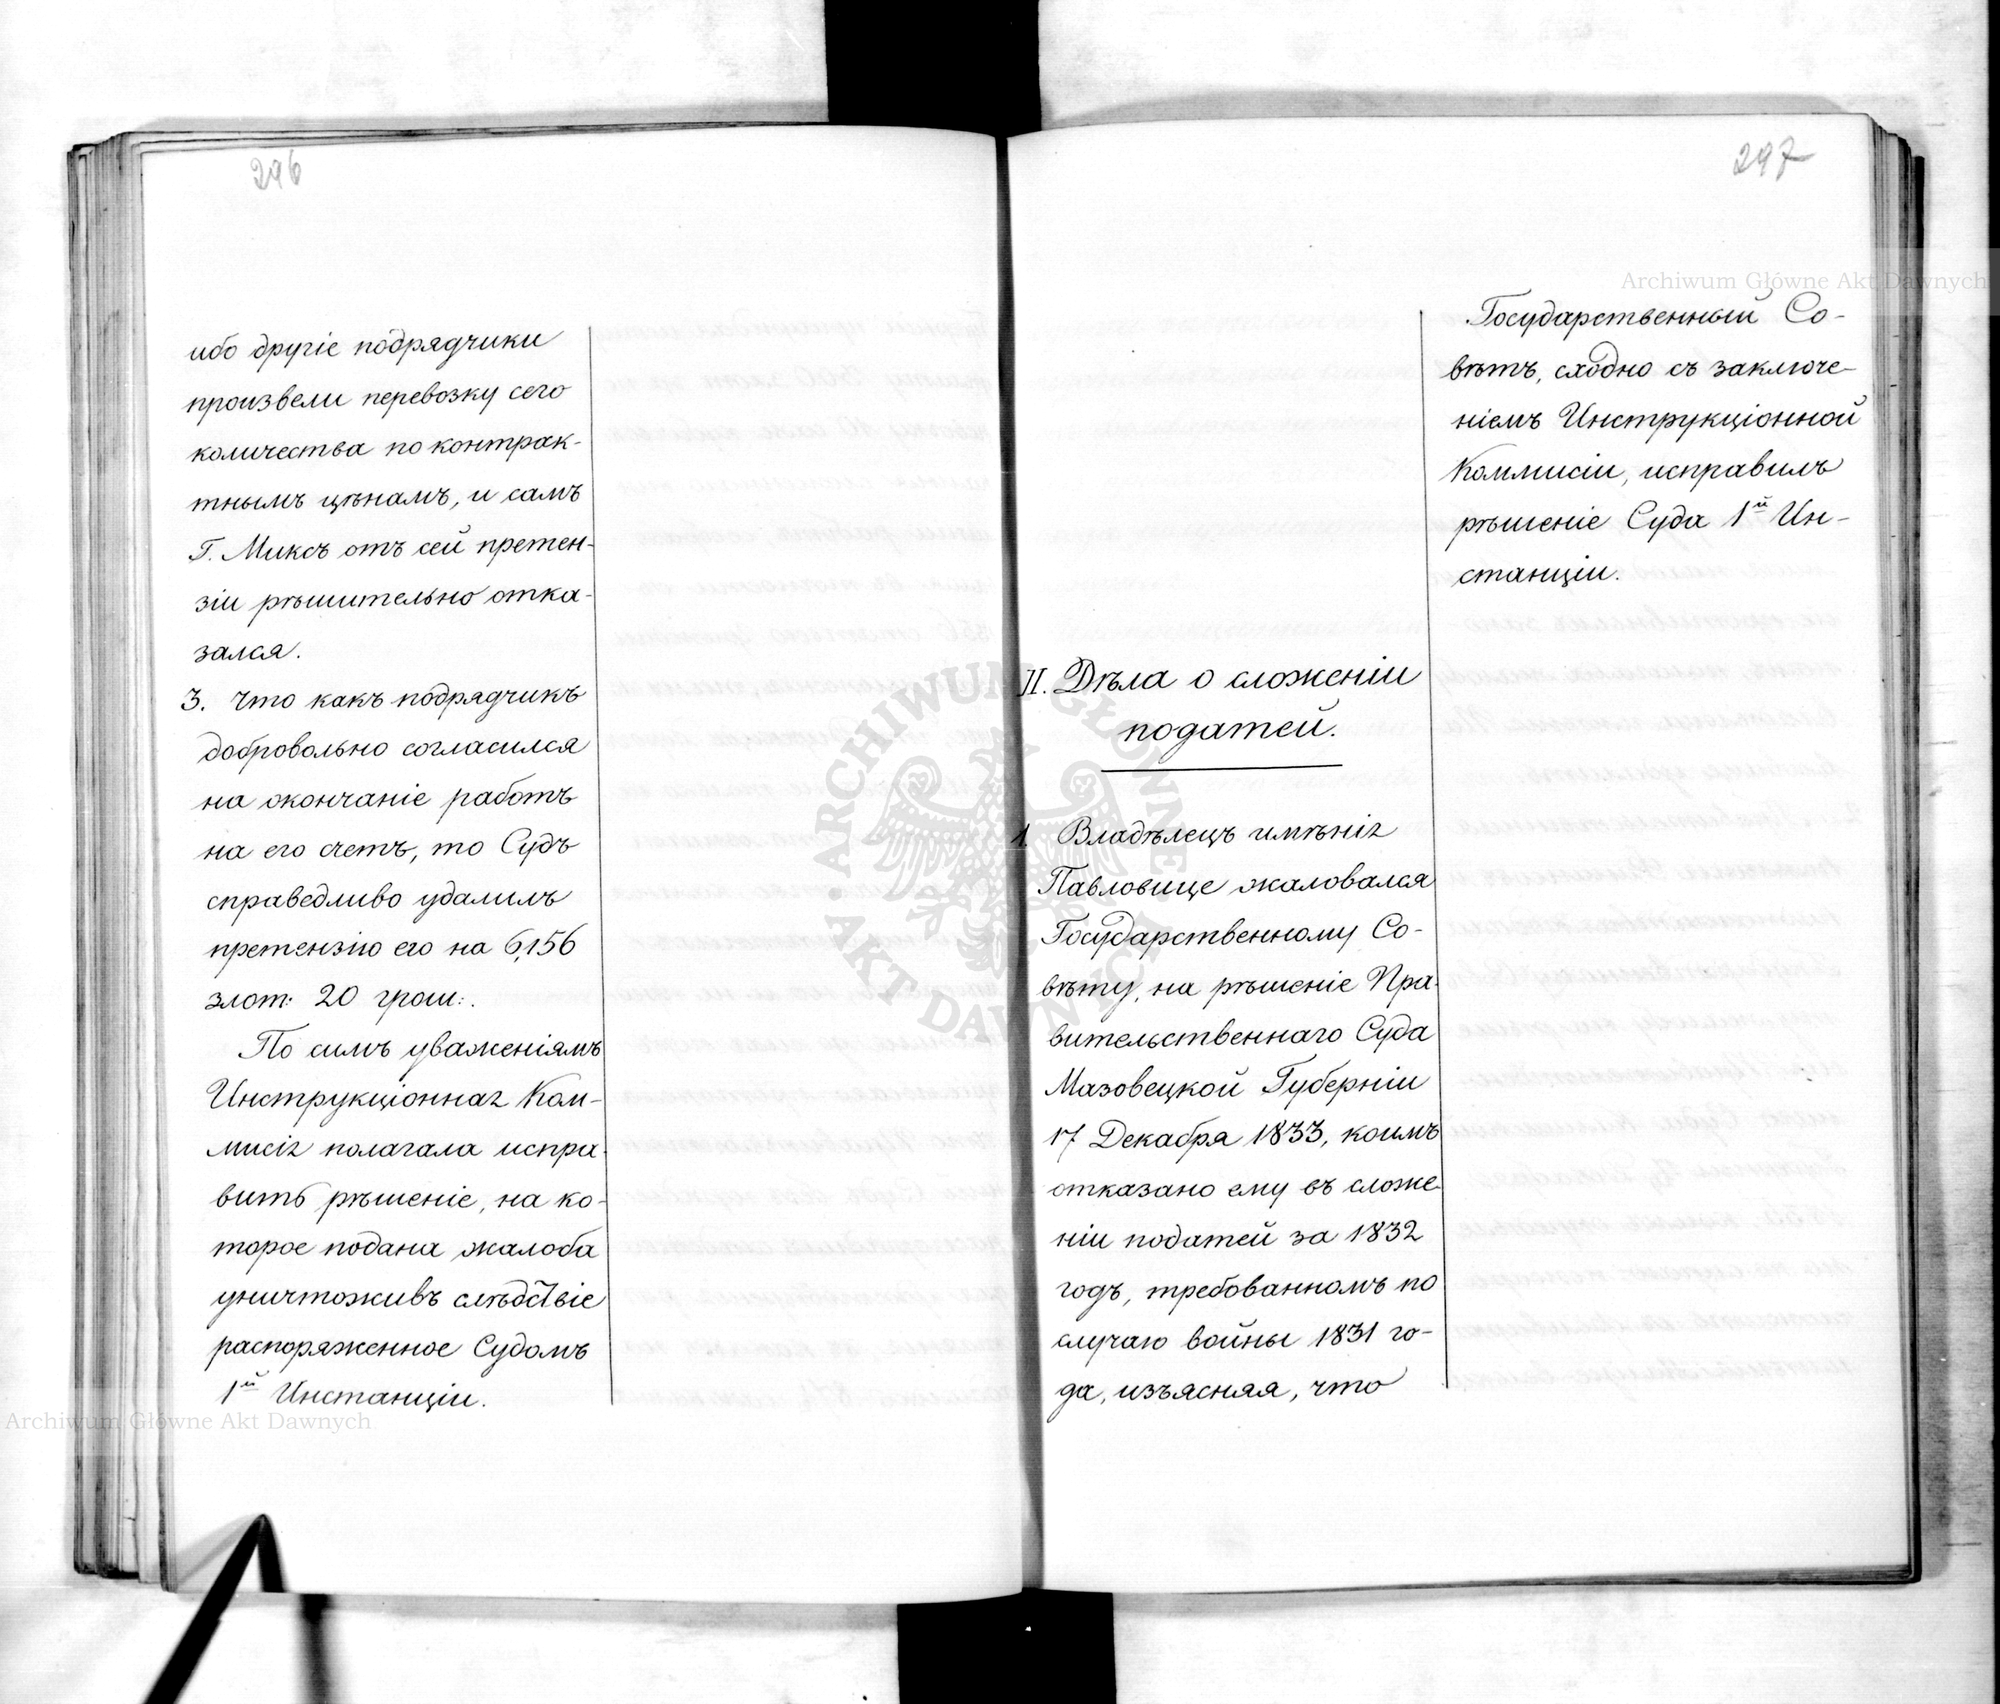 296
ибо другіе подрядчики
произвели перевозку сего
количества по контрак-
тнымъ цѣнамъ, и самъ
Г. Миксъ отъ сей претен-
зіи рѣшительно отка-
зался.
3. Что какъ подрядчикъ
добровольно согласился
на окончаніе работъ
на его счетъ, то Судъ
справедливо удалилъ
претензію его на 6,156
злот: 20 грош:.
По симъ уваженіямъ
Инструкціонная Ком-
мисія полагала испра-
вить рѣшеніе, на ко-
торое подана жалоба
уничтоживъ слѣдствіе
распоряженное Судомъ
1й Инстанціи.
297
Государственный Со-
вѣтъ, сходно съ заключе-
ніемъ Инструкціонной
Коммисіи, исправилъ
рѣшеніе Суда 1й Ин-
станціи.
II. Дѣла о сложеніи
податей.
1. Владѣлецъ имѣнія
Павловице жаловался
Государственному Со-
вѣту, на рѣшеніе Пра-
вительственнаго Суда
Мазовецкой Губерніи
17 Декабря 1833, коимъ
отказано ему въ сложе-
ніи податей за 1832
годъ, требованномъ по
случаю войны 1831 го-
да, изъясняя, что
Archiwum Główne Akt Dawnych
Archiwum Główne Akt Dawnych
ARCHIWUM GŁÓWNE AKT DAWNYCH